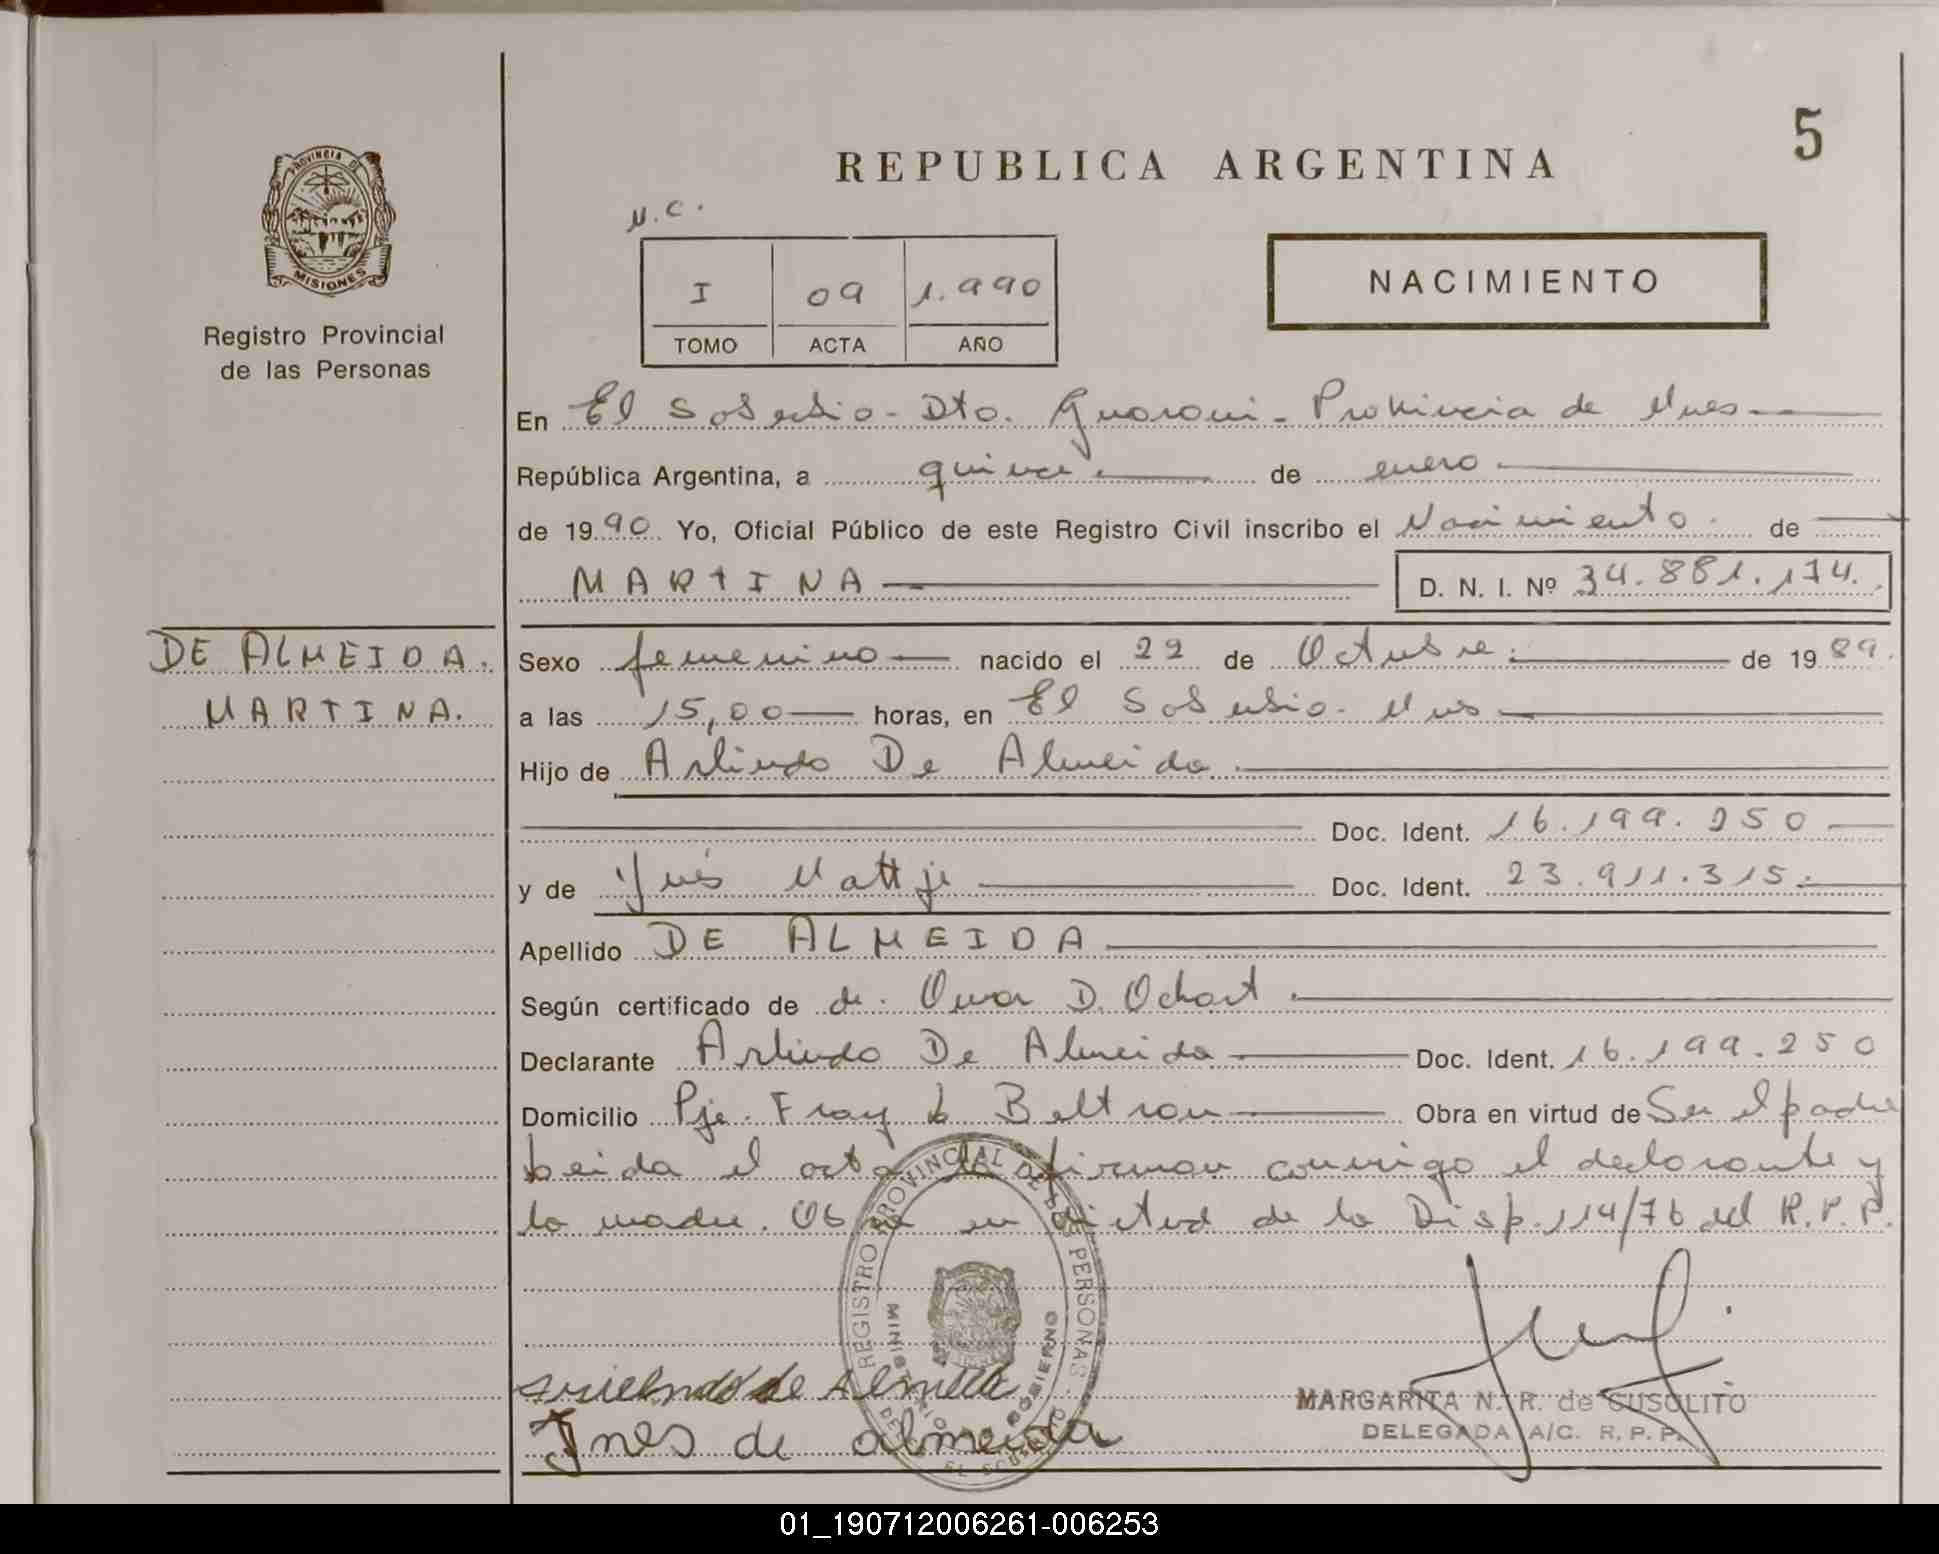 5
REPUBLICA ARGENTINA
PROVINCIA DE
MISIONES
Registro Provincial
de las Personas
N.C.
I 09 1.990
TOMO ACTA AÑO
NACIMIENTO
En El Soberbio - Dto. Guarani - Provincia de Mnes
República Argentina, a quince de enero
de 1990 Yo, Oficial Público de este Registro Civil inscribo el Nacimiento de
MARTINA D. N. I. Nº 34.881.174.
DE ALMEIDA.
MARTINA.
Sexo femenino nacido el 22 de Octubre de 1989.
a las 15,00 horas, en El Soberbio - Mnes
Hijo de Arlindo De Almeida
Doc. Ident. 16.199.250
y de Ynés Mattje Doc. Ident. 23.911.315.
Apellido DE ALMEIDA
Según certificado de dr. Omar D. Ochart
Declarante Arlindo De Almeida Doc. Ident. 16.199.250
Domicilio Pje. Fray L Beltran Obra en virtud de Ser el padre
Leida el acta la firman conmigo el declarante y
la madre. Obra en virtud de la Disp. 114/76 del R.P.P.
REGISTRO PROVINCIAL DE LAS PERSONAS
MINISTERIO DE GOBIERNO
EL SOBERBIO
de Almeida
Ines de almeida
MARGARITA N. R. de SUSOLITO
DELEGADA A/C. R. P. P.
01_190712006261-006253